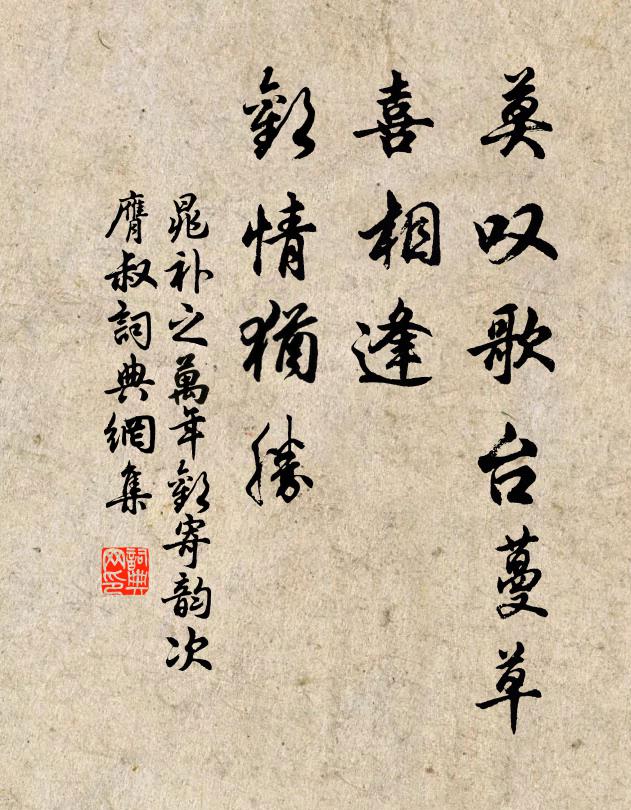 莫叹歌台蔓草
喜相逢
歡情猶勝
晁补之萬年歡寄韵次
膺叔詞典網集
詞典网印